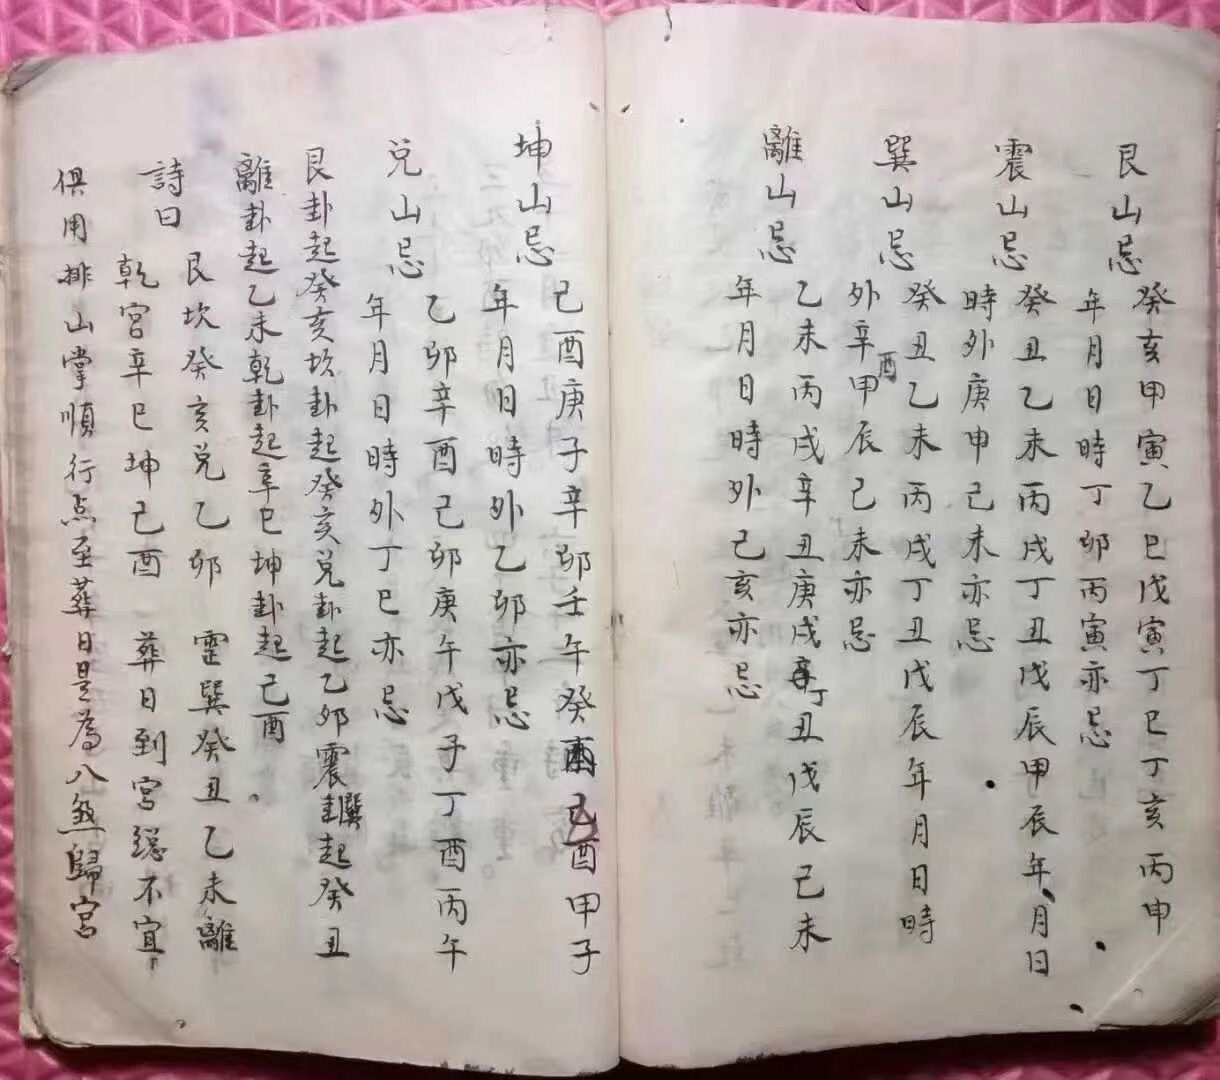 艮山忌
癸亥甲寅乙巳戊寅丁巳丁亥丙申
年月日時丁卯丙寅亦忌
震山忌
癸丑乙未丙戌丁丑戊辰甲辰年月日
時外庚申己未亦忌
巽山忌
癸丑乙未丙戌丁丑戊辰年月日時
外辛酉甲辰己未亦忌
離山忌
乙未丙戌辛丑庚戌丁丑戊辰己未
年月日時外己亥亦忌
坤山忌
己酉庚子辛卯壬午癸酉己酉甲子
年月日時外乙卯亦忌
兑山忌
乙卯辛酉己卯庚午戊子丁酉丙午
年月日時外丁巳亦忌
艮卦起癸亥坎卦起癸亥兑卦起乙卯震巽卦起癸丑
離卦起乙未乾卦起辛巳坤卦起己酉
詩曰
艮坎癸亥兑乙卯 震巽癸丑乙未離
乾宮辛巳坤己酉 葬日到宮總不宜
俱用排山掌順行点至葬日是為八煞歸宮